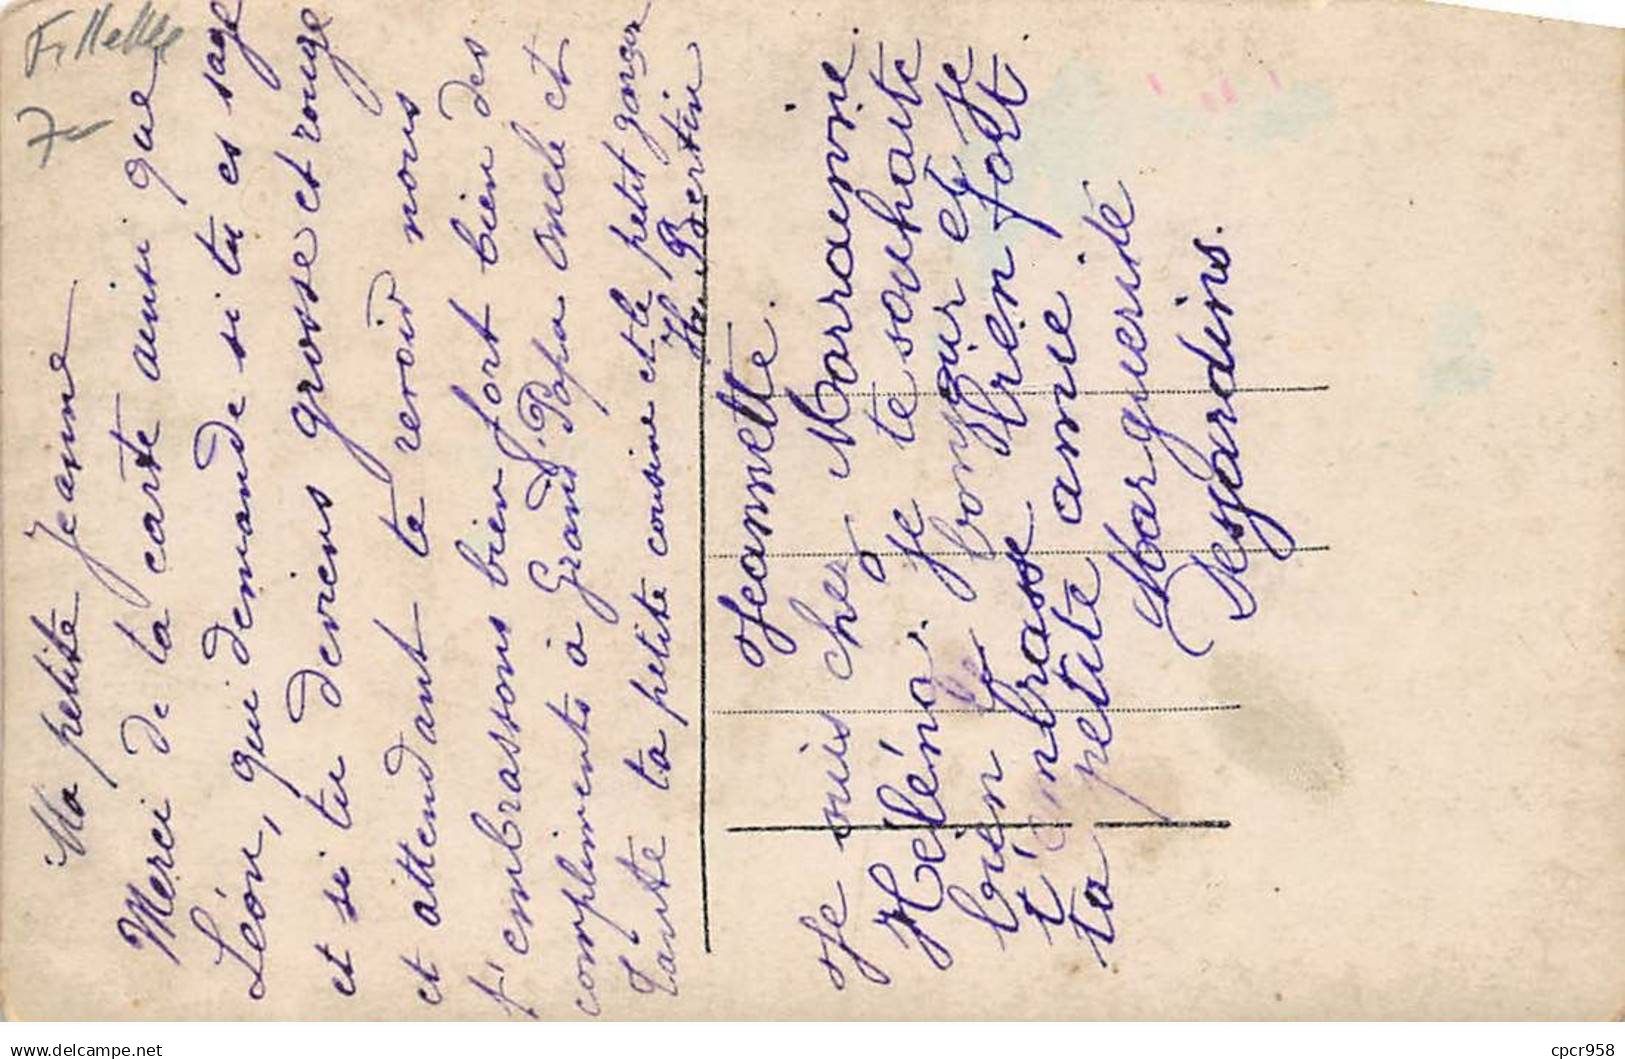 Fillette
7
Ma petite Jeanne
Merci de ta carte ainsi que
Léon, qui demande si tu es sage
et si tu deviens grosse et rouge
et attendant te revoir nous
t'embrassons bien fort bien des
compliments à Grand Papa Oncle et
Tante ta petite cousine et le petit garçon
Bertin
Jeannette.
Je suis chez Marrainne.
Héléna. Je te souhaite
bien le bonjour et Je
t'embrasse bien fort.
ta petite amie
Marguerite
Desjardins.
delcampe.net
cpcr958